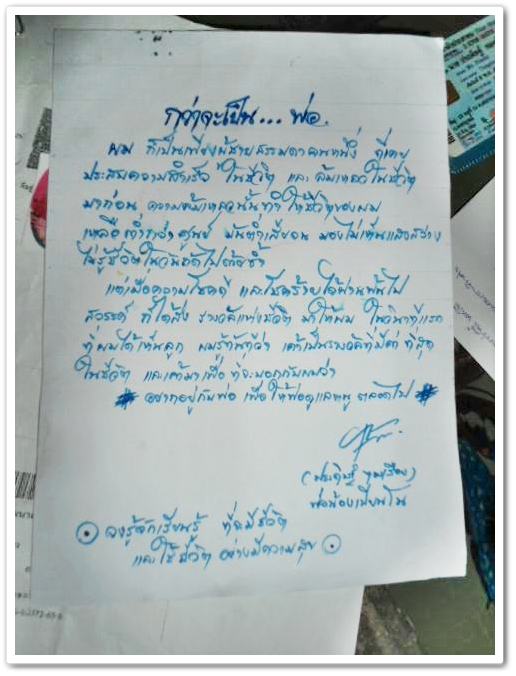 กว่าจะเป็น... พ่อ.
ผม ก็เป็นเพียงผู้ชายธรรมดาคนหนึ่ง ที่เคย
ประสบความสำเร็จ ในชีวิต และ ล้มเหลวในชีวิต
มาก่อน ความล้มเหลวนั้นทำให้ชีวิตของผม
เหลือต่ำกว่าศูนย์ มองไม่เห็นแสงสว่าง
ไม่รู้ชีวิตในวันต่อไปด้วยซ้ำ
แต่เมื่อความโชคดี และโชคร้ายได้ผ่านพ้นไป
สวรรค์ ที่ได้ส่ง รางวัลแห่งชีวิต มาให้ผม ในวินาทีแรก
ที่ผมได้เห็นลูก ผมรู้ทันทีว่า เค้าเป็นรางวัลที่มีค่า ที่สุด
ในชีวิต และเค้ามาเพื่อ ที่จะบอกกับผมว่า
อยากอยู่กับพ่อ เพื่อให้พ่อดูแลหนู ตลอดไป
พ่อน้องเปียโน
จงรู้จักเรียนรู้ ที่จะมีชีวิต
และใช้ชีวิต อย่างมีความสุข